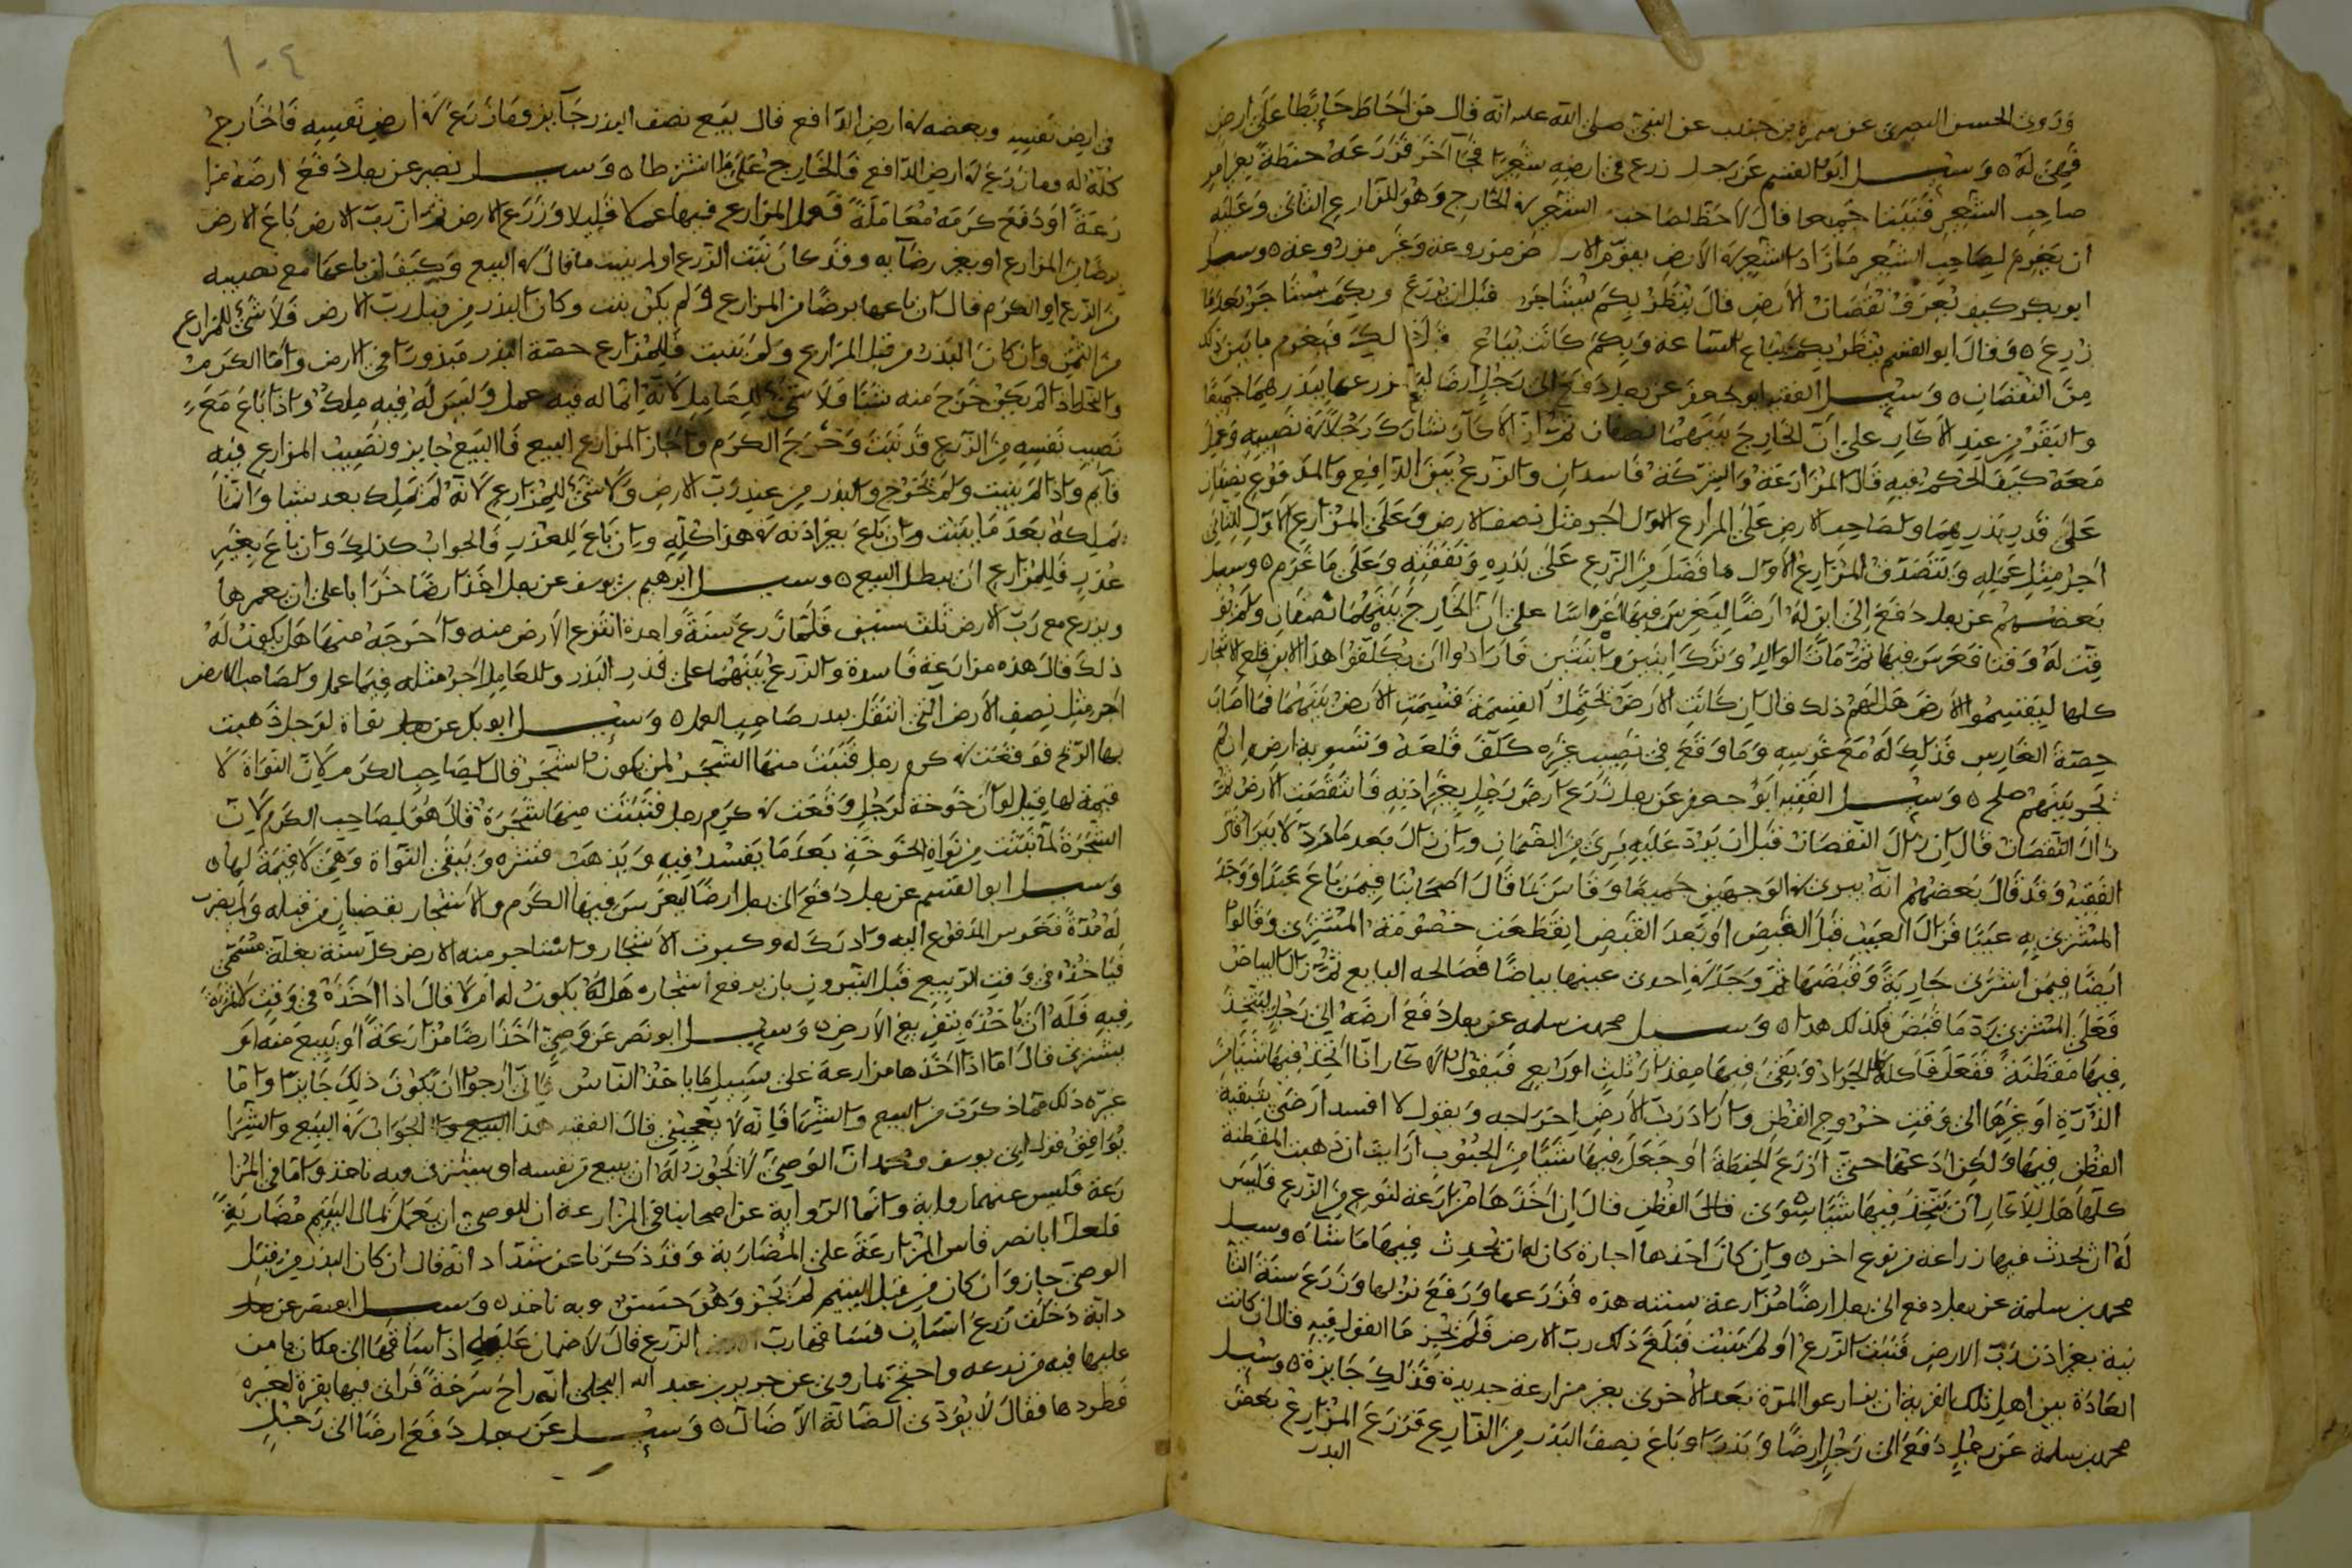 وروى الحسن البصري عن سمرة بن جندب عن النبي صلى الله عليه انه قال من احاط حايطا على ارض
فهي له ٥ وسيل ابو القسم عن رجل زرع في ارضه شعيرا فجا آخر فزرعه حنطة بغير امر
صاحب الشعير فنبتا جميعا قال لا حظ لصاحب الشعير في الخارج وهو للزارع الثاني وعليه
ان يغرم لصاحب الشعير ما زاد الشعير في الارض يقوم الارض مزروعة وغير مزروعة ٥ وسيل
ابو بكر كيف يعرف نقصان الارض قال ينظر بكم يستاجر قبل ان يزرع وبكم يستاجر بعد ما
زرع ٥ وقال ابو القسم ينظر بكم يباع الساعة وبكم كانت تباع قبل ذلك فيغرم ما بين ذلك
من النقصان ٥ وسيل الفقيه ابو جعفر عن رجل دفع الى رجل ارضا ليزرعها ببذرهما جميعا
والبقر من عند الاكار على ان الخارج بينهما نصفان ثم ان الاكار شارك رجلا في نصيبه وعمل
معه كيف الحكم فيه قال المزارعة والشركة فاسدان والزرع بين الدافع والمدفوع نصفان
على قدر بذرهما ولصاحب الارض على المزارع الاول اجر مثل نصف الارض وعلى المزارع الاول للثاني
اجر مثل عمله ويتصدق المزارع الاول ما فضل من الزرع على بذره ونفقته وعلى ما غرم ٥ وسيل
بعضهم عن رجل دفع الى ابن له ارضا ليغرس فيها اغراسا على ان الخارج بينهما نصفان ولم يؤ
قت له وقتا فغرس فيها ثم مات الوالد وترك ابنين وابنتين فارادوا ان يكلفوا هذا الابن قلع الاشجار
كلها ليقتسموا الارض هل لهم ذلك قال ان كانت الارض تحتمل القسمة قسمت الارض بينهم فما اصاب
حصة الغارس فذلك له مع غرسه وما وقع في نصيب غيره كلف قلعه وتسوية ارضه ان لم
يجر بينهم صلح ٥ وسيل الفقيه ابو جعفر عن رجل زرع ارض رجل بغير اذنه فانتقصت الارض ثم
زال النقصان قال ان زال النقصان قبل ان يرد عليه برئ من الضمان وان زال بعد ما رد لا يبرا قال
الفقيه وقد قال بعضهم انه يبرئ في الوجهين جميعا وقاس بما قال اصحابنا فيمن باع عبدا ووجد
المشتري به عيبا فزال العيب قبل القبض او بعد القبض انقطعت خصومة المشتري وقالوا
ايضا فيمن اشترى جارية وقبضها ثم وجد في احدى عينيها بياضا فصالحه البايع ثم زال البياض
فعلى المشتري رد ما قبض فكذلك هذا ٥ وسيل محمد بن سلمة عن رجل دفع ارضه الى رجل ليتخذ
فيها مقطنة ففعل فاكله الجراد وبقي فيها مقدار ثلث او ربع فيقول الاكار انا اتخذ فيها شيا من
الذرة او غيرها الى وقت خروج القطن واراد رب الارض اخراجه ويقول لا افسد ارضي بتبقية
القطن فيها ولكن ادعها حتى ازرع الحنطة او جعل فيها شيا من الحبوب ارايت ان ذهبت المقطنة
كلها هل للاكار ان يتخذ فيها شيا سوى القطن قال ان اخذها مزارعة لنوع من الزرع فليس
له ان يحدث فيها زراعة من نوع اخر ٥ وان كان اخذها اجارة كان له ان يحدث فيها ما شاء ٥ وسيل
محمد بن سلمة عن رجل دفع الى رجل ارضا مزارعة سنته هذه فزرعها ورفع نزلها وزرع سنة الثا
نية بغير اذن رب الارض فنبت الزرع او لم ينبت فبلغ ذلك رب الارض فلم يجز ما القول فيه قال ان كانت
العادة بين اهل تلك القرية ان يزارعوا المرة بعد الاخرى بغير مزارعة جديدة فذلك جايزة ٥ وسيل
محمد بن سلمة عن رجل دفع الى رجل ارضا وبذرا وباع نصف البذر من الزارع فزرع المزارع بعض
البذر
١٠٤
في ارض نفسه وبعضه في ارض الدافع قال بيع نصف البذر جايز وما زرع في ارض نفسه فالخارج
كله له وما زرع في ارض الدافع فالخارج على ما اشترطا ٥ وسيل نصير عن رجل دفع ارضه مزا
رعة او دفع كرمه معاملة فعمل المزارع فيها عملا قليلا وزرع الارض ثم ان رب الارض باع الارض
برضا المزارع او بغير رضا به وقد كان نبت الزرع او لم ينبت ما قال في البيع وكيف ان باعها مع نصيبه
من الزرع او الكرم قال ان باعها برضا من المزارع ولم يكن ينبت وكان البذر من قبل رب الارض فلا شئ للمزارع
من الثمن وان كان البذر من قبل المزارع ولم ينبت فللمزارع حصة البذر مبذورا في الارض واما الكرم
والنخل اذا لم يكن خرج منه شيا فلا شئ للعامل لانه انما له فيه عمل وليس له فيه ملك واذا باع مع
نصيب نفسه من الزرع قد نبت وخرج الكرم واجاز المزارع البيع فالبيع جايز ونصيب المزارع فيه
قايم واذا لم ينبت ولم يخرج والبذر من عند رب الارض ولا شئ للمزارع لانه لم يملك بعد شيا وانما
يملكه بعد ما ينبت وان باع بغير اذنه في هذا كله وان باع للعذر فالجواب كذلك وان باع بغير
عذر فللمزارع ان يبطل البيع ٥ وسيل ابرهيم بن يوسف عن رجل اخذ ارضا خرابا على ان يعمرها
ويزرع مع رب الارض ثلث سنين فلما زرع سنة واحدة انتزع الارض منه واخرجه منها هل يكون له
ذلك قال هذه مزارعة فاسدة والزرع بينهما على قدر البذر وللعامل اجر مثله فيما عمل ولصاحب الارض
اجر مثل نصف الارض التي انتقل ببذر صاحب العمل ٥ وسيل ابو بكر عن نواة لرجل ذهبت
بها الريح فوقعت في كرم رجل فنبت منها الشجر لمن يكون الشجر قال لصاحب الكرم لان النواة لا
قيمة لها قيل لو ان خوخة لرجل وقعت في كرم رجل فنبتت منها شجرة قال هو لصاحب الكرم لان
الشجرة لما نبتت من نواة الخوخة بعد ما يفسد فيه ويذهب قشره ويبقى النواة وهي لا قيمة لها ٥
وسيل ابو القسم عن رجل دفع الى رجل ارضا ليغرس فيها الكرم والاشجار بقضبان من قبله ولم يضرب
له مدة فغرس المدفوع اليه وادرك له وكبرت الاشجار واستاجر منه الارض كل سنة بغلة مسمى
فياخذه في وقت الربيع قبل النيروز بان يرفع اشجاره هل يكون له ام لا قال اذا اخذه في وقت لا ثمرة
فيه فله ان ياخذه بتفريغ الارض ٥ وسيل ابو نصر عن وصي اخذ ارضا مزارعة او يبيع منه او
يشتري قال اما اذا اخذها مزارعة على سبيل ما ياخذ الناس فاني ارجو ان يكون ذلك جايزا واما
غيره ذلك مما ذكرت من البيع والشرا فانه لا يعجبني قال الفقيه هذا الجواب في البيع والشرا
يوافق قول ابي يوسف ومحمد ان الوصي لا يجوز له ان يبيع من نفسه او يشتري وبه ناخذ واما في المزا
رعة فليس عنهما رواية وانما الرواية عن اصحابنا في المزارعة ان للوصي ان يعمل بمال اليتيم مضاربة
فلعل ابا نصر قاس المزارعة على المضاربة وقد ذكرنا عن شداد انه قال ان كان البذر من قبل
الوصي جاز وان كان من قبل اليتيم لم يجز وهو حسن وبه ناخذ ٥ وسيل ابو نصر عن رجل
دابة دخلت زرع انسان فساقها رب الزرع قال لا ضمان عليه اذا ساقها الى مكان يامن
عليها فيه من زرعه واحتج بما روي عن جرير بن عبد الله البجلي انه راح سرحة فراى فيها بقرة لغيره
فطردها فقال لا يؤدي الضالة الا ضال ٥ وسيل عن رجل دفع ارضا الى رجل